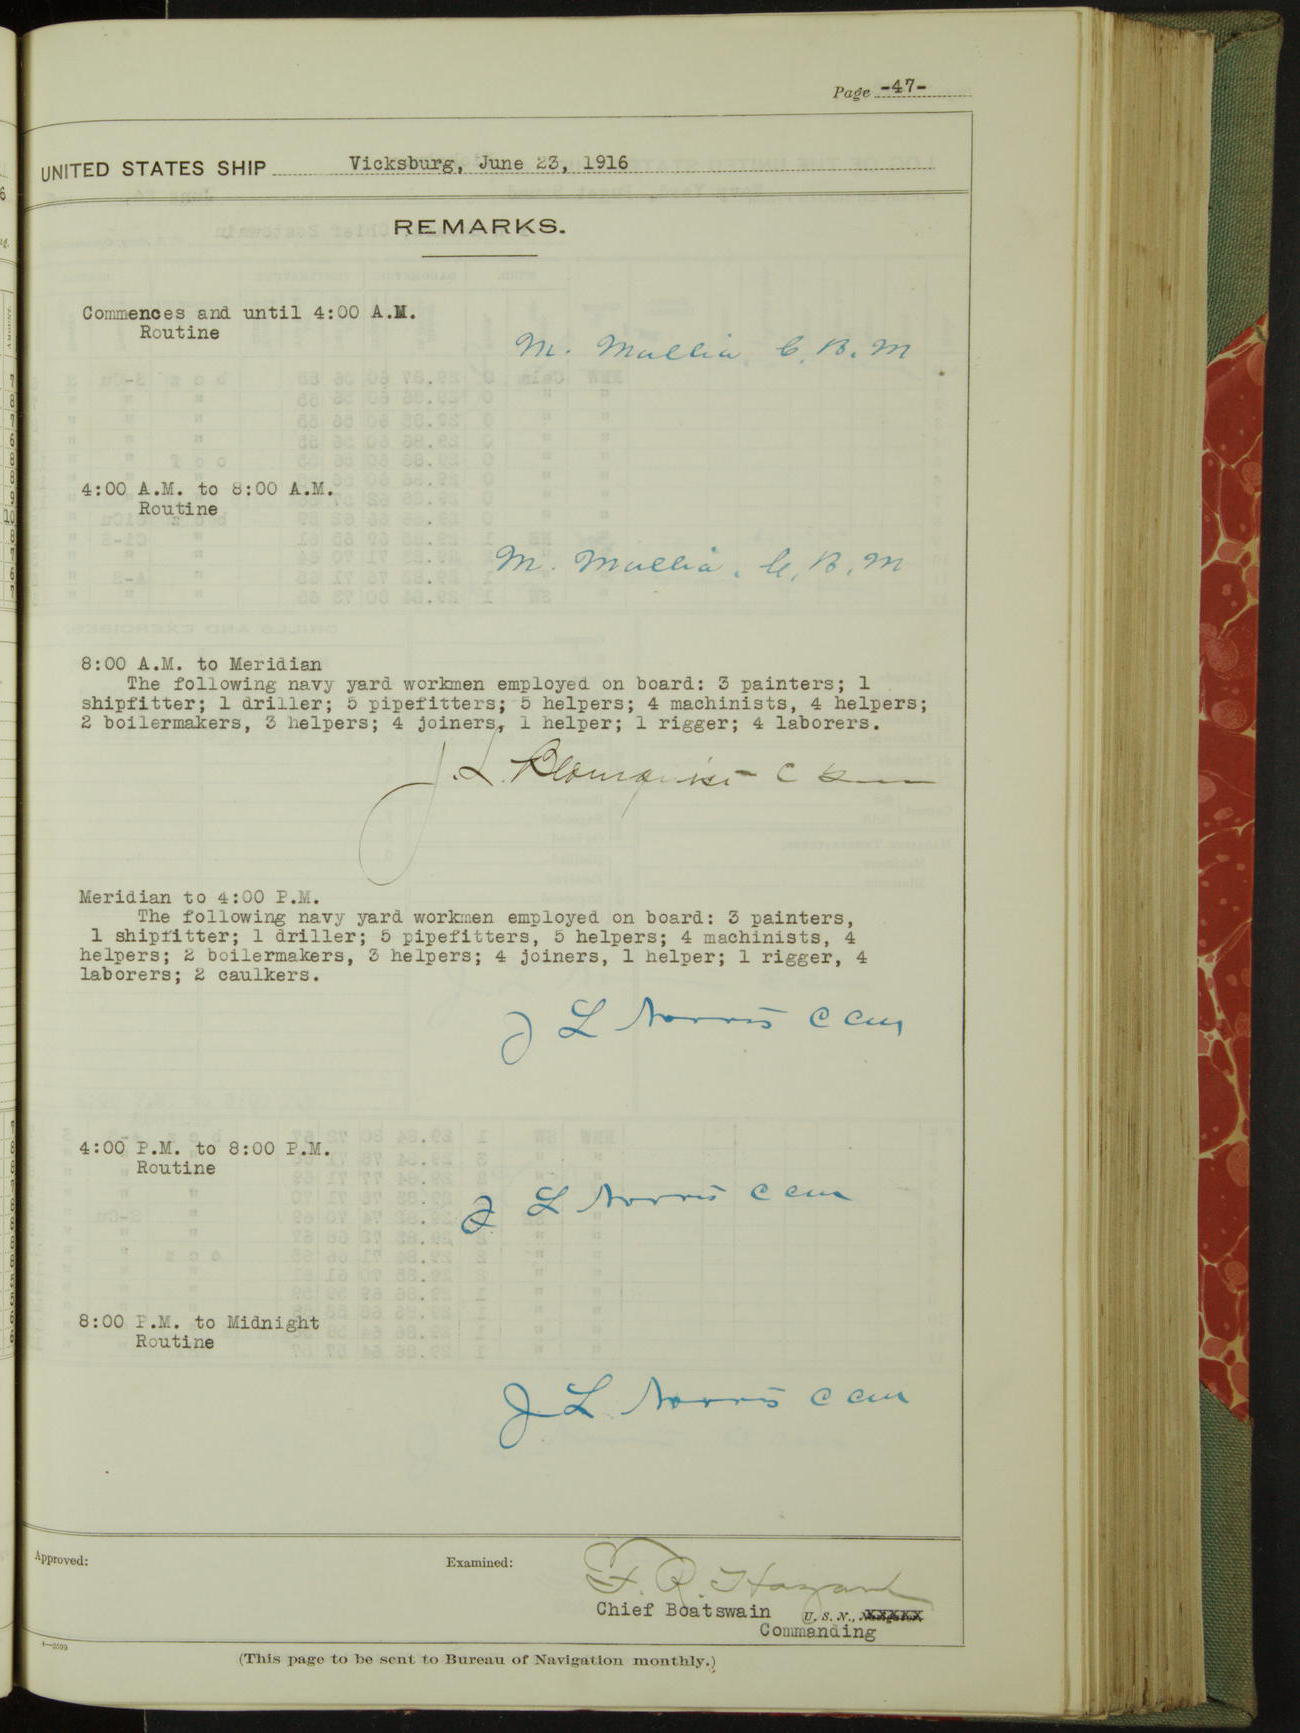 Page -47-
UNITED STATES SHIP Vicksburg, June 23, 1916
REMARKS.
Commences and until 4:00 A.M.
Routine
M. Mullia, C. B. M
4:00 A.M. to 8:00 A.M.
Routine
M. Mullia. C. B. M
8:00 A.M. to Meridian
The following navy yard workmen employed on board: 3 painters; 1
shipfitter; 1 driller; 5 pipefitters; 5 helpers; 4 machinists, 4 helpers;
2 boilermakers, 3 helpers; 4 joiners, 1 helper; 1 rigger; 4 laborers.
J. L. Blomquist C
Meridian to 4:00 P.M.
The following navy yard workmen employed on board: 3 painters,
1 shipfitter; 1 driller; 5 pipefitters, 5 helpers; 4 machinists, 4
helpers; 2 boilermakers, 3 helpers; 4 joiners, 1 helper; 1 rigger, 4
laborers; 2 caulkers.
J L Norris C CM
4:00 P.M. to 8:00 P.M.
Routine
J L Norris C CM
8:00 P.M. to Midnight
Routine
J L Norris C CM
Approved:
Examined:
F. R. Hazard
Chief Boatswain U. S. N.,
Commanding
(This page to be sent to Bureau of Navigation monthly.)